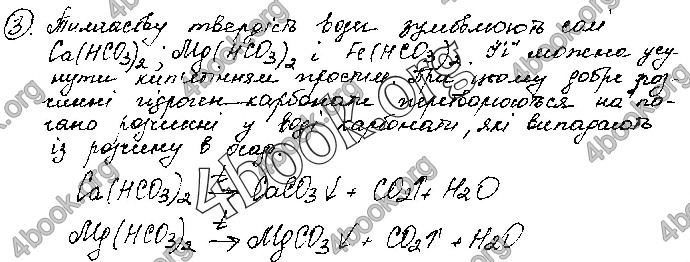 ③. Тимчасову твердість води зумовлюють солі
Ca(HCO3)2; Mg(HCO3)2 і Fe(HCO3)2. Її можна усу-
нути кип'ятінням простим. При цьому добре роз-
чинні гідроген карбонати перетворюються на по-
гано розчинні у воді карбонати, які випадають
із розчину в осад.
Ca(HCO3)2 t→ CaCO3↓ + CO2↑ + H2O
Mg(HCO3)2 t→ MgCO3↓ + CO2↑ + H2O
4book.org